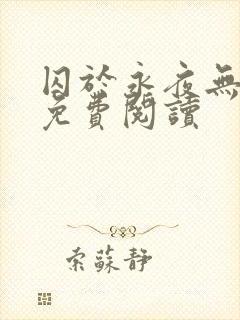 囚於永夜無
免費閱讀
索蘇靜